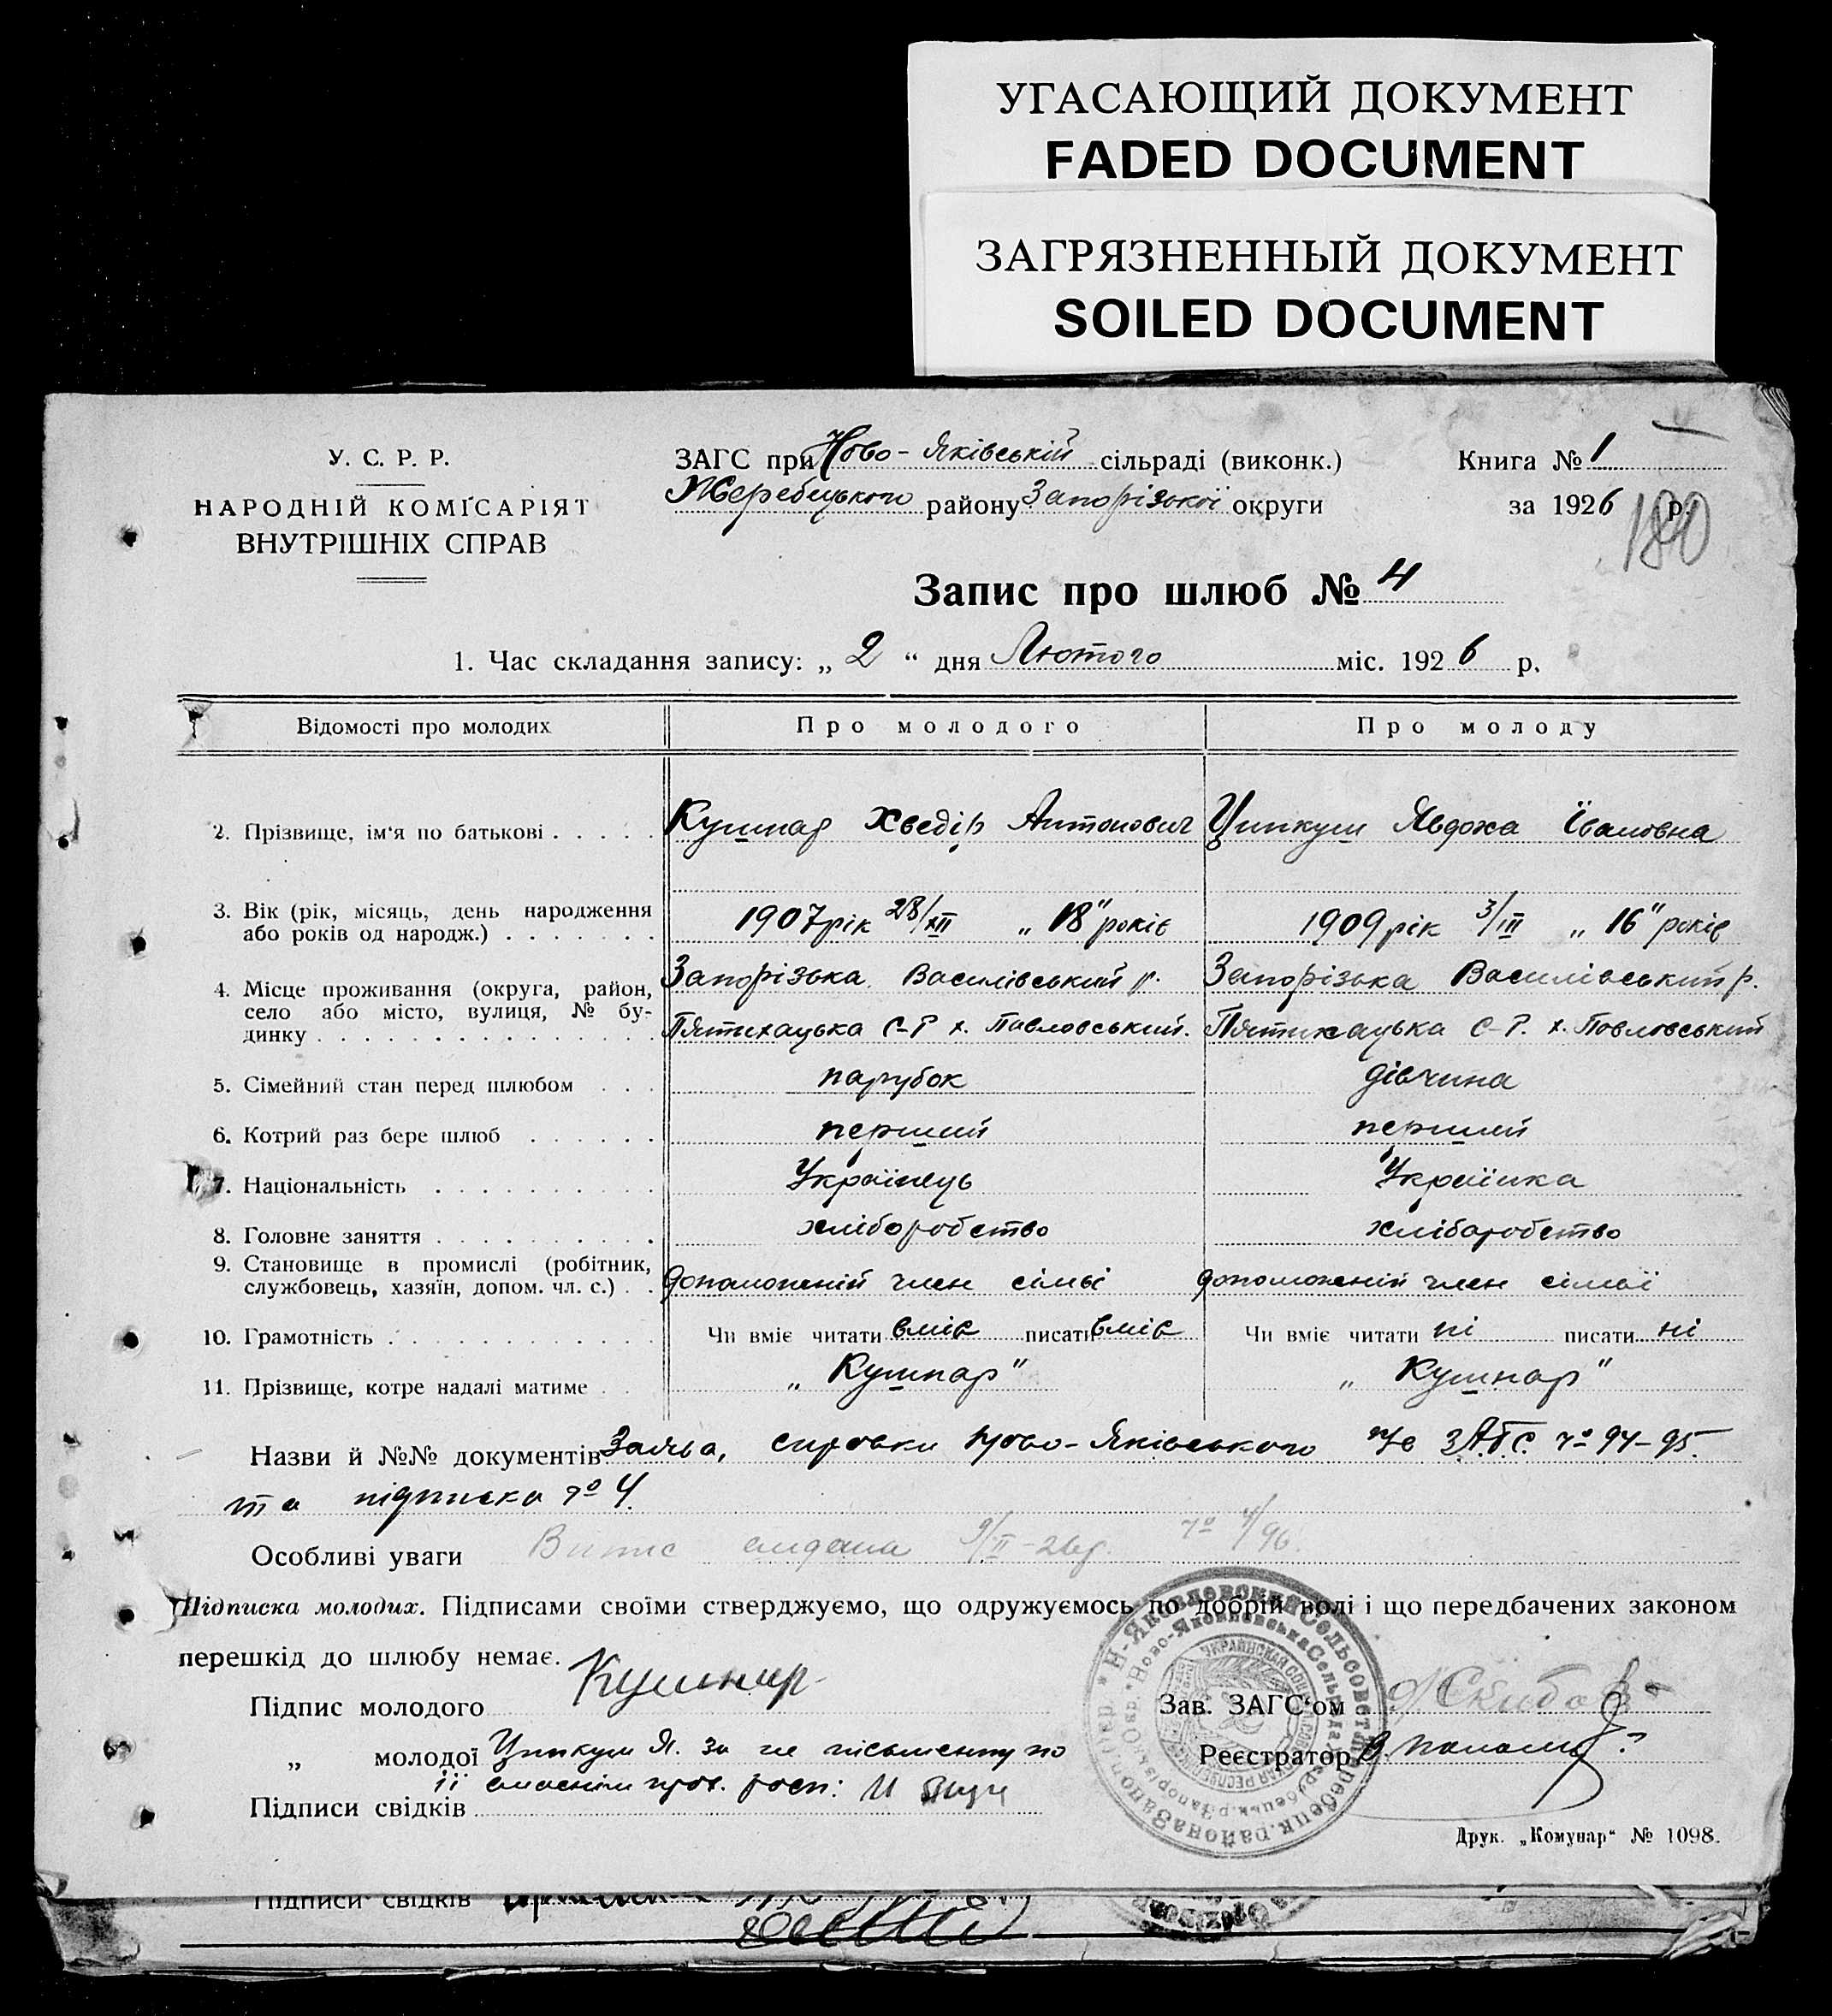 УГАСАЮЩИЙ ДОКУМЕНТ
FADED DOCUMENT
ЗАГРЯЗНЕННЫЙ ДОКУМЕНТ
SOILED DOCUMENT
У. С. Р. Р.
НАРОДНІЙ КОМІСАРІЯТ
ВНУТРІШНІХ СПРАВ
ЗАГС при Ново-Яківській сільраді (виконк.)
Жеребецького району Запорізької округи
Книга № 1
за 1926 р.
180
Запис про шлюб № 4
1. Час складання запису: „ 2 “ дня Лютого міс. 1926 р.
Відомості про молодих Про молодого Про молоду
2. Прізвище, ім'я по батькові Кушнар Хведір Антонович Ципкуш Явдоха Івановна
3. Вік (рік, місяць, день народження
або років од народж.) 1907 рік 28/XII „18" років 1909 рік 3/III „16" років
4. Місце проживання (округа, район, Запорізька Василівський р. Запорізька Василівський р.
село або місто, вулиця, № бу-
динку Пятихацька С-Р х. Павловський. Пятихацька С-Р. х. Повловський
5. Сімейний стан перед шлюбом парубок дівчина
6. Котрий раз бере шлюб перший перший
7. Національність Українець Українка
8. Головне заняття хліборобство хліборобство
9. Становище в промислі (робітник,
службовець, хазяїн, допом. чл. с.) допоможній член сімьі допоможній член сімьї
10. Грамотність Чи вміє читати вміє писати вміє Чи вміє читати ні писати ні
11. Прізвище, котре надалі матиме „Кушнар" „Кушнар"
Назви й №№ документів Заява, справки Ново-Яківського ЗАГС. № 94-95.
та підписка № 4.
Особливі уваги Витяг 9/II-26р. № 4/96.
Підписка молодих. Підписами своїми стверджуємо, що одружуємось по добрій волі і що передбачених законом
перешкід до шлюбу немає.
Підпис молодого Кушнар
„ молодої Ципкуш Я. за не письменну по
її
Підписи свідків
Зав. ЗАГС'ом Скиба
Реєстратор
Друк. „Комунар“ № 1098.
Підписи свідків